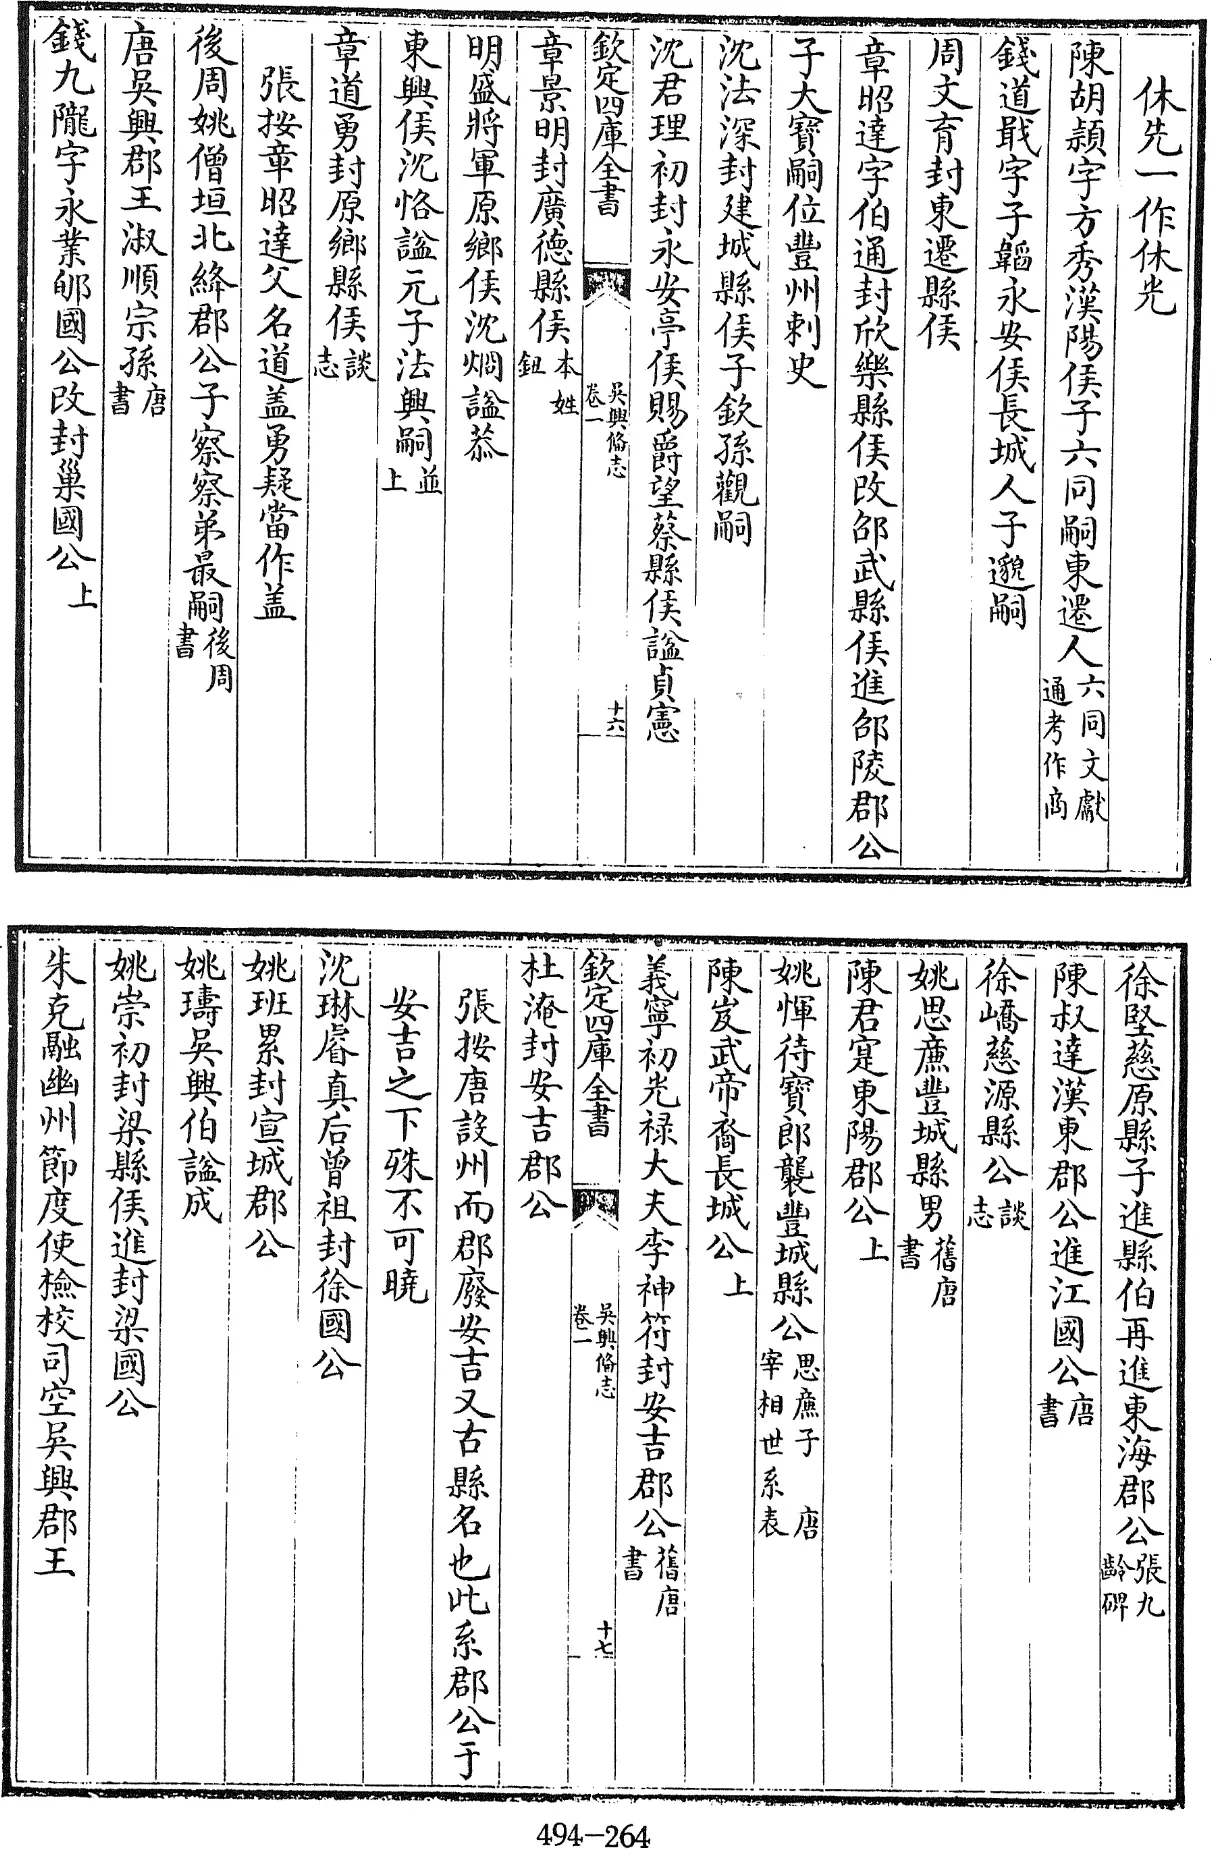 休先一作休光
陳胡頴字方秀漢陽侯子六同嗣東遷人六同文獻通考作商
錢道戢字子韜永安侯長城人子邈嗣
周文育封東遷縣侯
章昭達字伯通封欣樂縣侯改邵武縣侯進邵陵郡公
子大寶嗣位豐州刺史
沈法深封建城縣侯子欽孫觀嗣
沈君理初封永安亭侯賜爵望蔡縣侯諡貞憲
欽定四庫全書
吳興備志
卷一
十六
章景明封廣德縣侯本姓鈕
明盛將軍原鄉侯沈烱諡恭
東興侯沈恪諡元子法興嗣並上
章道勇封原鄉縣侯談志
張按章昭達父名道盖勇疑當作盖
後周姚僧垣北絳郡公子察察弟最嗣後周書
唐吳興郡王淑順宗孫唐書
錢九隴字永業郇國公改封巢國公上
徐堅慈原縣子進縣伯再進東海郡公張九齡碑
陳叔達漢東郡公進江國公唐書
徐嶠慈源縣公談志
姚思亷豐城縣男舊唐書
陳君寔東陽郡公上
姚惲待寶郎襲豐城縣公思亷子 唐宰相世系表
陳岌武帝裔長城公上
義寧初光禄大夫李神符封安吉郡公舊唐書
欽定四庫全書
吳興備志
卷一
十七
杜淹封安吉郡公
張按唐設州而郡廢安吉又古縣名也此系郡公于
安吉之下殊不可曉
沈琳睿真后曾祖封徐國公
姚班累封宣城郡公
姚璹吳興伯諡成
姚崇初封梁縣侯進封梁國公
朱克融幽州節度使檢校司空吳興郡王
494-264